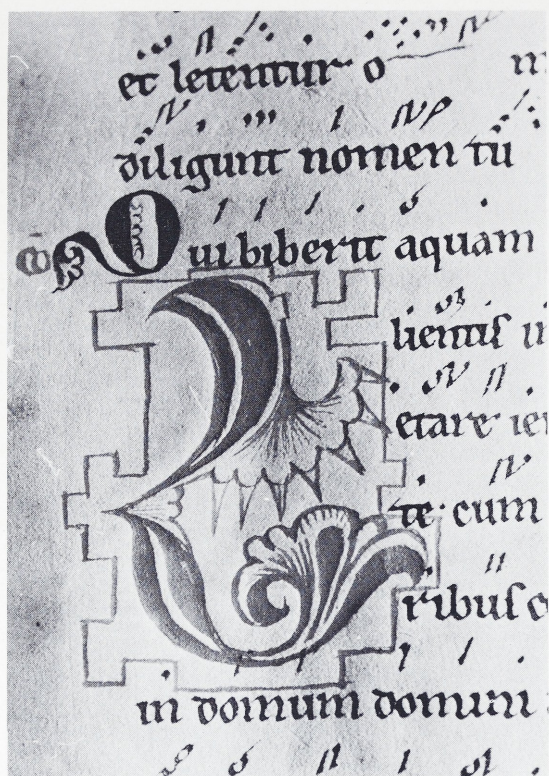 et letentur o
diligunt nomen tu
co Qui biberit aquam
L
lientis
etare ier
te· cum
ribus
in domum domini